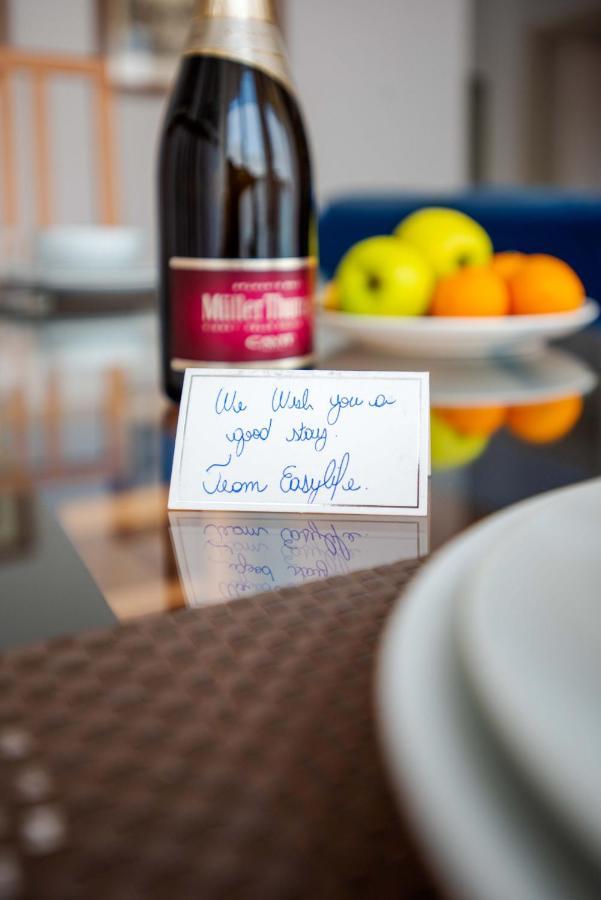 Müller Thurgau
We Wish you a
good stay.
Team Easylife.